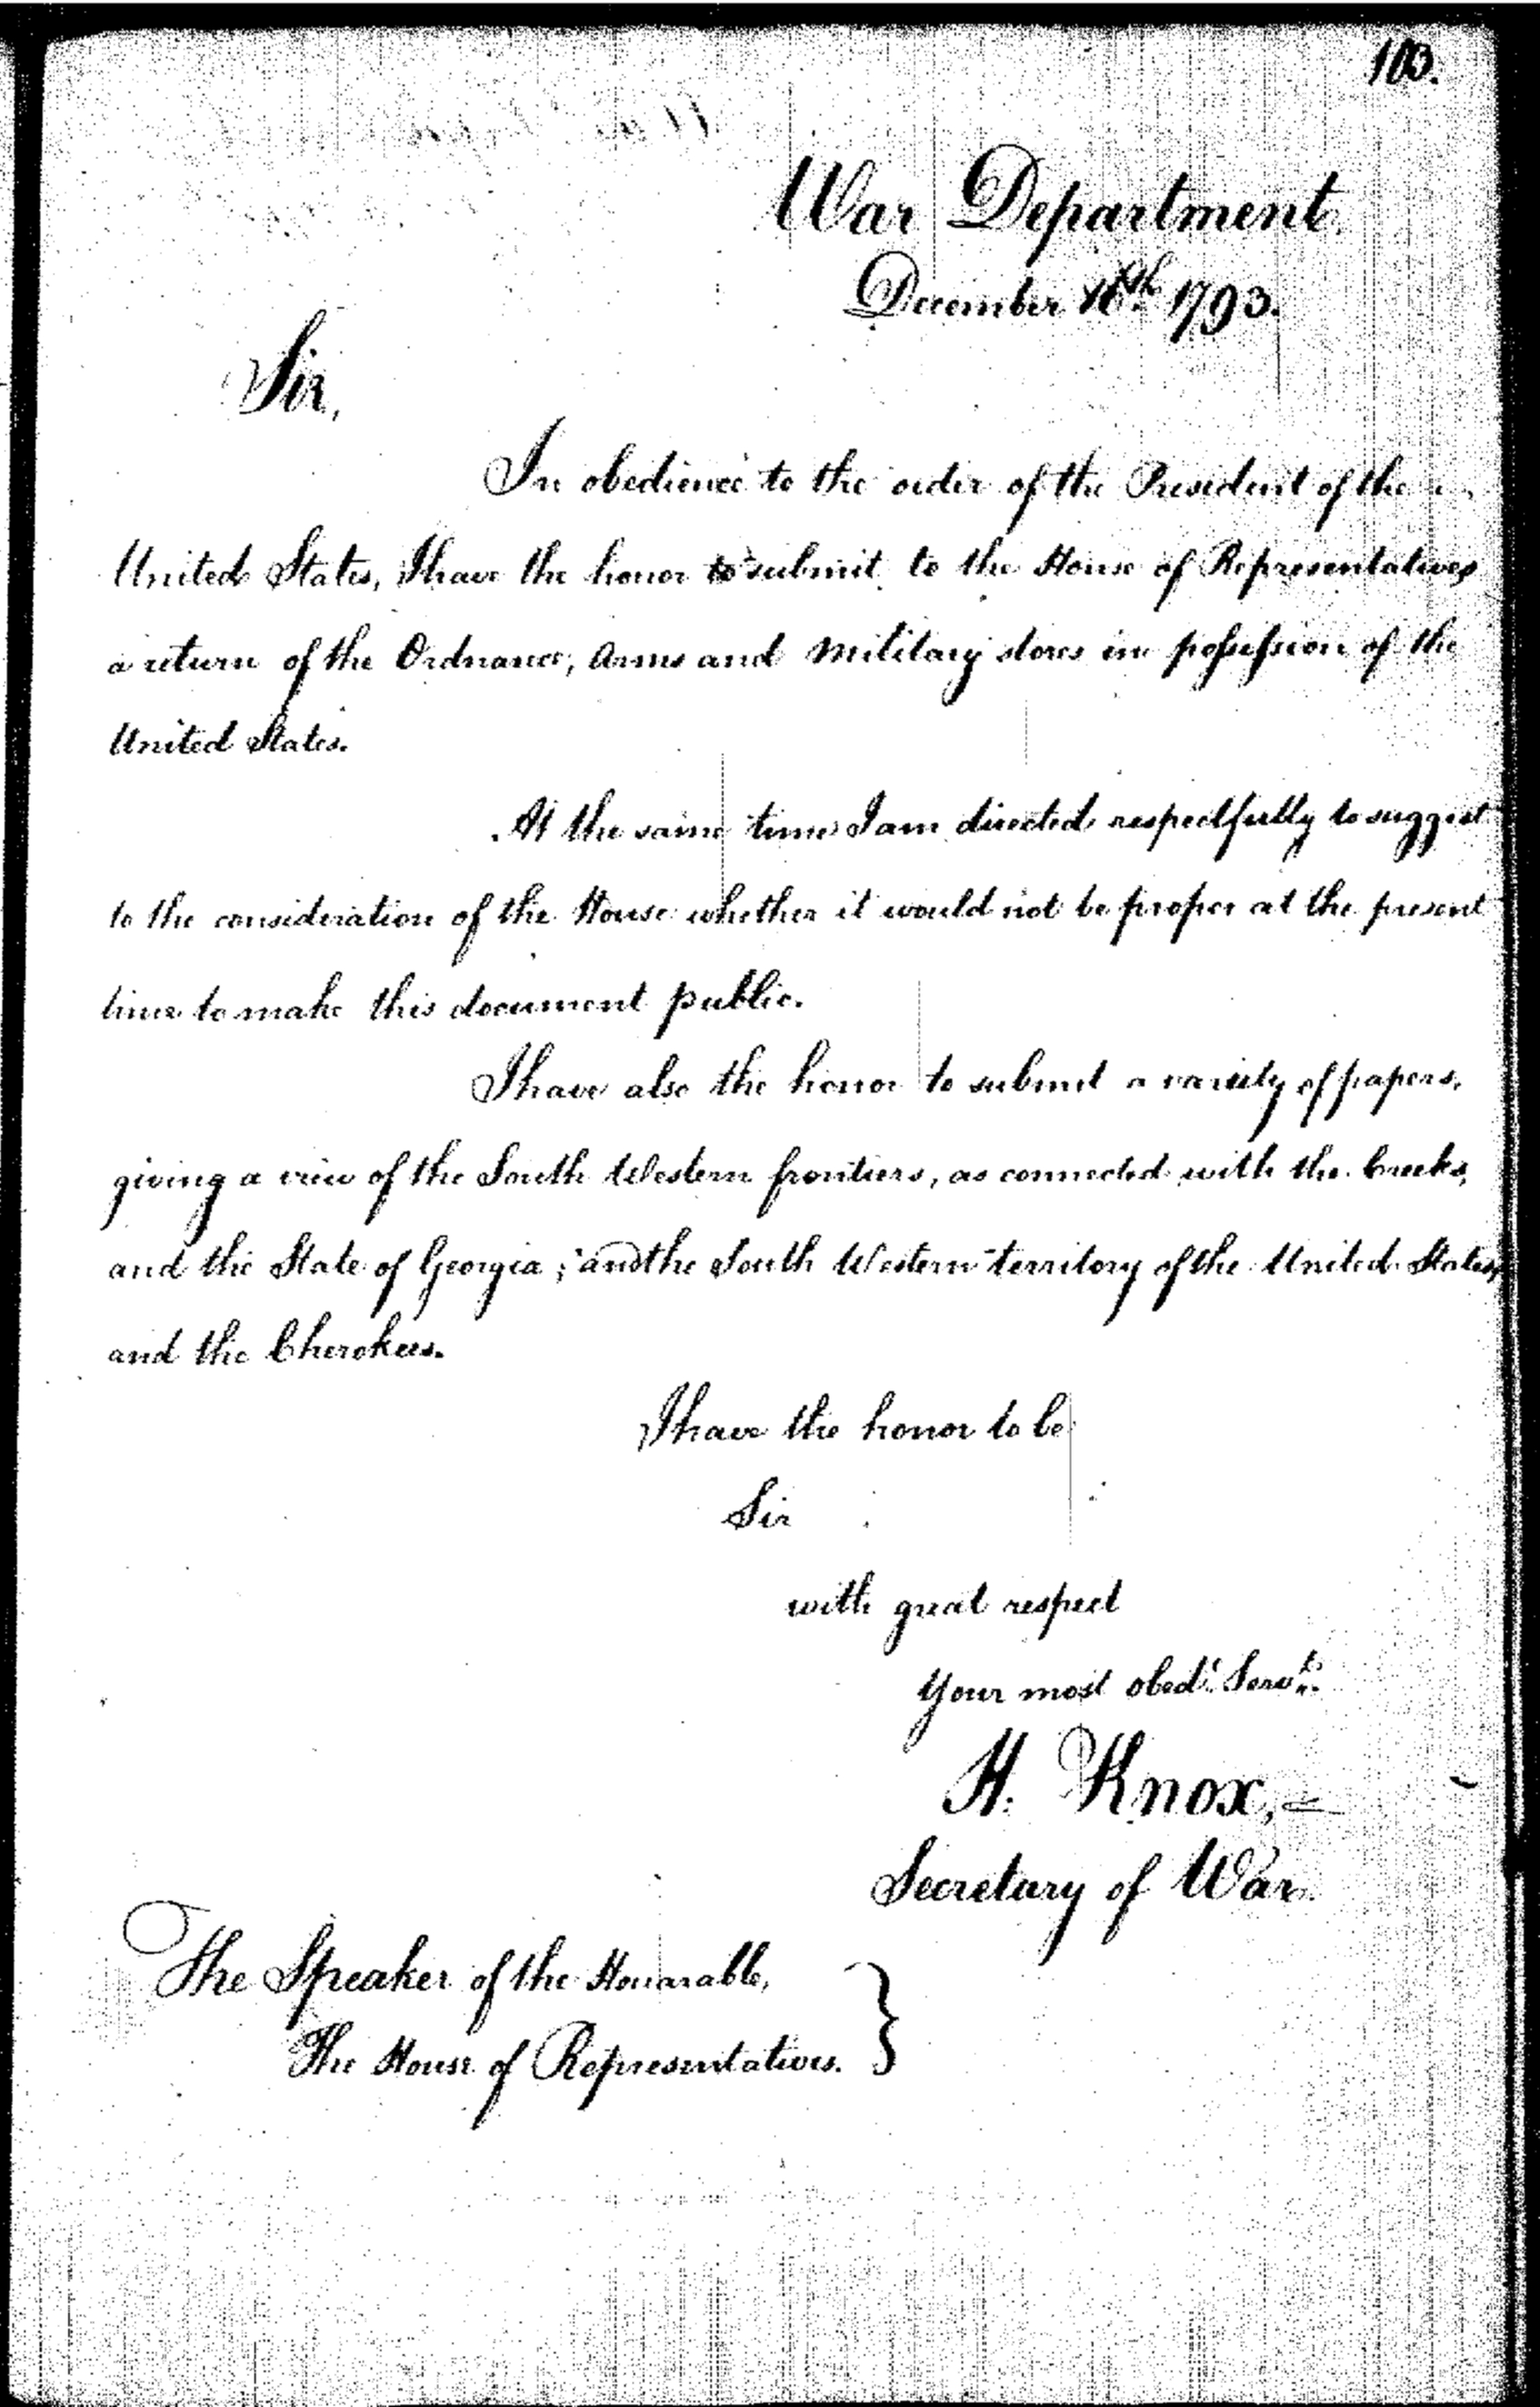 103.
War Department.
December 16th 1793.
Sir,
In obedience to the order of the President of the
United States, I have the honor to submit to the House of Representatives
a return of the Ordnance, Arms and Military stores in possession of the
United States.
At the same time I am directed respectfully to suggest
to the consideration of the House whether it would not be proper at the present
time to make this document public.
I have also the honor to submit a variety of papers,
giving a view of the South Western frontiers, as connected with the Creeks,
and the State of Georgia; and the South Western territory of the United States,
and the Cherokees.
I have the honor to be
Sir
with great respect
Your most obedt. Servt.
H. Knox,
Secretary of War.
The Speaker of the Honarable,
The House of Representatives.